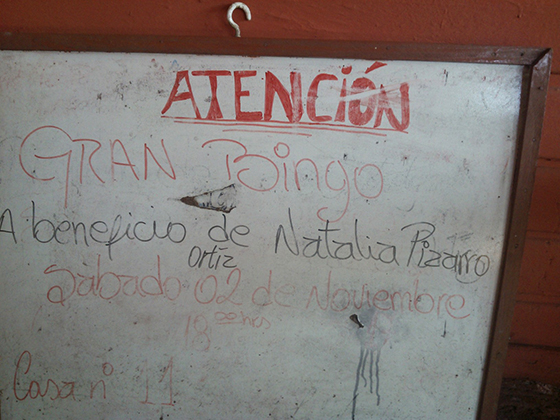 ATENCIÓN
GRAN Bingo
A beneficio de Natalia Pizarro
Ortiz
Sábado 02 de Noviembre
18:00 hrs
Casa n° 11